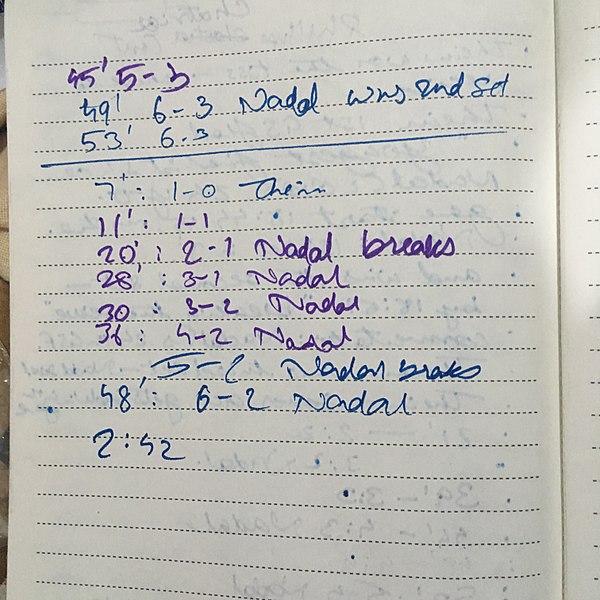 45' 5-3
49' 6-3 Nadal wins 2nd set
53' 6-3
7': 1-0 Theim
11': 1-1
20': 2-1 Nadal breaks
28': 3-1 Nadal
30: 3-2 Nadal
36: 4-2 Nadal
5-2 Nadal breaks
48' 6-2 Nadal
2:42